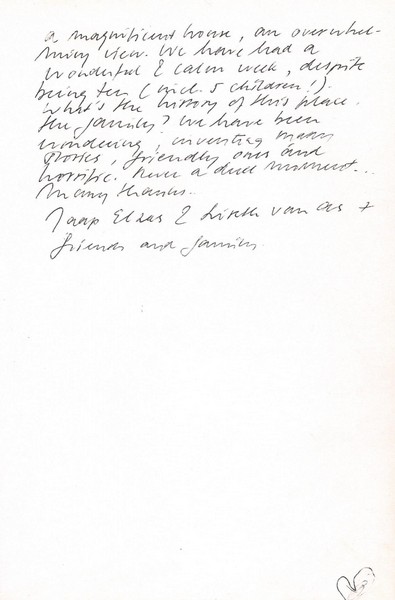 a magnificent house, an overwhel-
ming view. We have had a
wonderful & calm week, despite
being ten (incl. 5 children!).
What's the history of this place,
the family? We have been
wondering, inventing many
stories, friendly ones and
horrific. Never a dull moment...
Many thanks.
Jaap Elzas & Liseth van As +
friends and family.